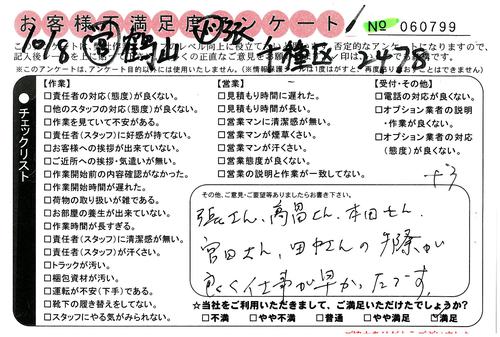 お客様不満足度アンケート
№ 060799
10/8 鶴山 千種区 2478
【作業】
□責任者の対応(態度)が良くない。
□他のスタッフの対応(態度)が良くない。
□作業を見ていて不安がある。
□責任者(スタッフ)に好感が持てない。
□お客様への挨拶が出来ていない。
□ご近所への挨拶・気遣いが無い。
□作業開始前の内容確認がなかった。
□作業開始時間が遅れた。
□荷物の取り扱いが雑である。
□お部屋の養生が出来ていない。
□作業時間が長すぎる。
□責任者(スタッフ)に清潔感が無い。
□責任者(スタッフ)が汗くさい。
□トラックが汚い。
□梱包資材が汚い。
□運転が不安(下手)である。
□靴下の履き替えをしてない。
□スタッフにやる気がみられない。
【営業】
□見積もり時間に遅れた。
□見積もり時間が長い。
□営業マンに清潔感が無い。
□営業マンが煙草くさい。
□営業マンが汗くさい。
□営業態度が良くない。
□営業の説明と作業が一致してない。
【受付・その他】
□電話の対応が良くない。
□オプション業者の説明
・作業が良くない。
□オプション業者の対応
(態度)が良くない。
チェックリスト
その他、ご意見・ご要望等ありましたらお書き下さい。
張さん、高畠さん、本田さん、
宮田さん、田中さんの手際が
良く仕事が早かったです。
☆当社をご利用いただきまして、ご満足いただけたでしょうか?
□不満 □やや不満 □普通 □やや満足 □満足